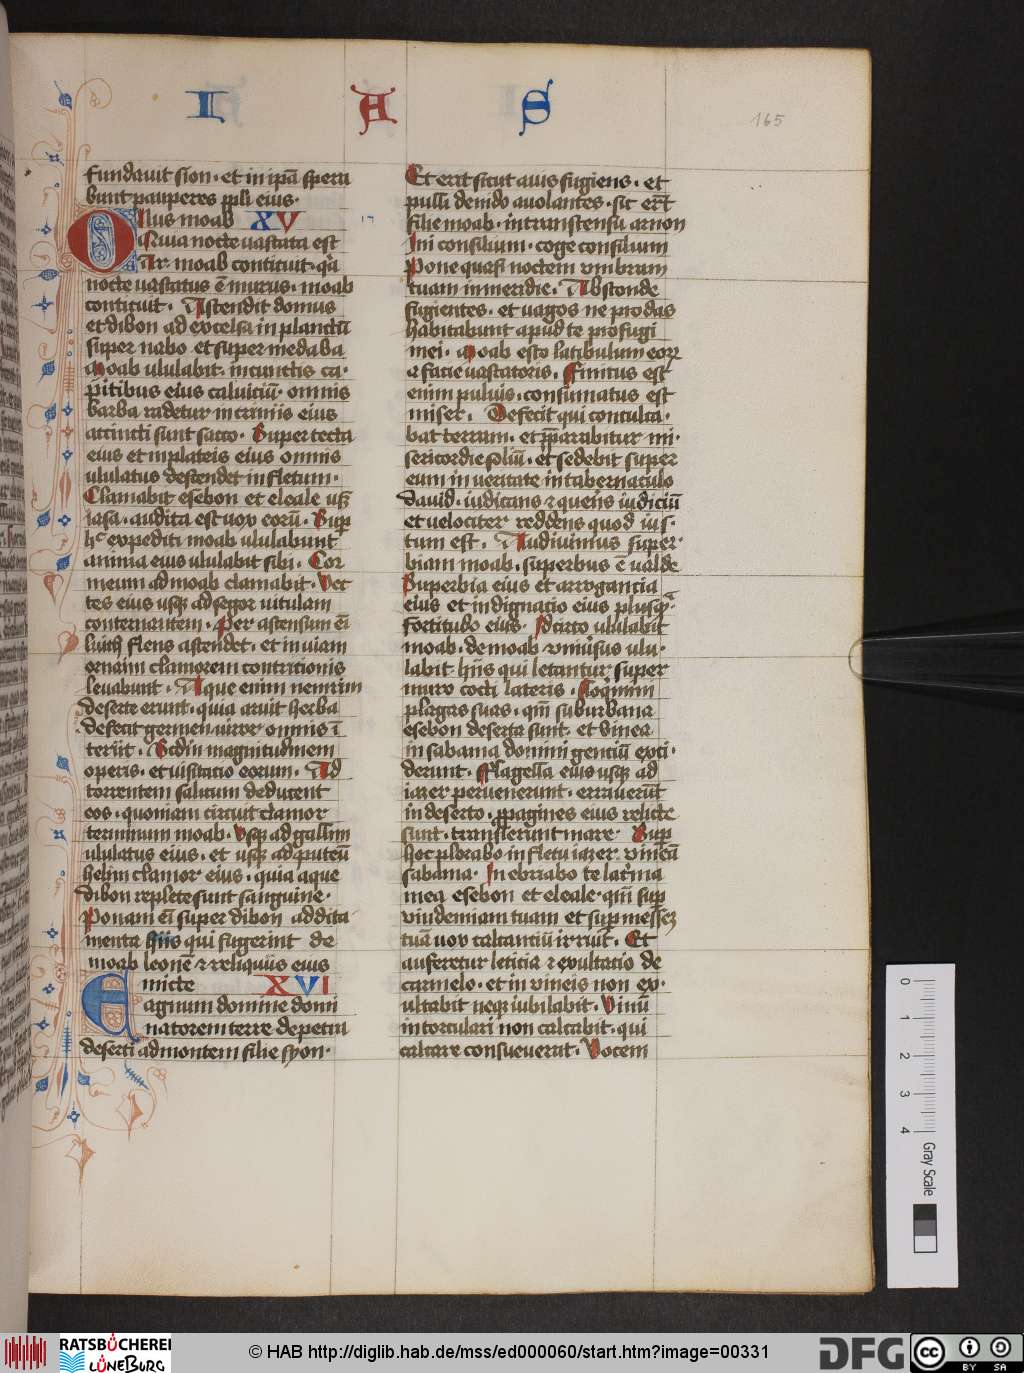 I A S
165
fundauit sion · et in ipā spera
bunt pauperes ppli eius ·
Onus moab XV
Quia nocte uastata est
Ar moab conticuit · q̄a
nocte uastatus ē murus · moab
conticuit · Ascendit domus
et dibon ad excelsa in planctū
super nabo et super medaba
moab ululabit · in cunctis ca ·
pitibus eius caluiciū · omnis
barba radetur in triuiis eius
accincti sunt sacco · Super tecta
eius et in plateis eius omnis
ululatus descendet in fletum ·
Clamabit esebon et eleale usꝫ
iasa · audita est uox eorū · Sup
hͨ expediti moab ululabunt
anima eius ululabit sibi · Cor
meum ad moab clamabit · Vec
tes eius usqꝫ ad segor uitulam
conternantem · Per ascensum ēi
luith flens ascendet · et in uiam
oronaim clamorem contricionis
leuabunt · Aque enim nemrim
deserte erunt · quia aruit herba
defecit germen uiror omnis ī
teriit · Scdm magnitudinem
operis · et uisitatio eorum · Ad
torrentem salicum deducent
eos · quoniam circuit clamor
terminum moab · Usqꝫ ad gallim
ululatus eius · et usqꝫ ad puteū
helim clamor eius · quia aque
dibon replete sunt sanguine ·
Ponam ēi super dibon addita
menta hiis qui fugerint de
moab leonē ⁊ reliquiis eius
Emicte XVI
agnum domine domi
natorem terre de petra
deserti ad montem filie syon ·
Et erit sicut auis fugiens · et
pulli de nido auolantes · sic er̄t
filie moab · in transcensu arnon
Ini consilium · coge consilium
Pone quasi noctem vmbram
tuam in meridie · Absconde
fugientes · et uagos ne prodas
habitabunt apud te profugi
mei · moab esto latibulum eorꝝ
a facie uastatoris · Finitus est
enim puluis · consumatus est
miser · Defecit qui conculca ·
bat terram · et p̄parabitur mi ·
sericordie soliū · et sedebit super
eum in ueritate in tabernaculo
dauid · iudicans ⁊ querēs iudiciū
et uelociter reddens quod ius ·
tum est · Audiuimus super ·
biam moab · superbus ē ualde
Superbia eius et arrogancia
eius et indignacio eius plusqꝫ ·
fortitudo eius · Idcirco ululabit
moab · de moab vniuersus ulu ·
labit · hiis qui letantur super
muro cocti lateris · Loquimi
plagas suas · qm̄ suburbana
esebon deserta sunt · et vinea
in sabama domini genciū exci ·
derunt · Flagella eius usqꝫ ad
iazer peruenerunt · errauerūt
in deserto · ꝓpagines eius relicte
sunt · transierunt mare · Sup
hoc plorabo in fletu iazer · vineā
sabama · Inebriabo te lacrima
mea esebon et eleale · qm̄ sup
vindemiam tuam et sup messeꝫ
tuā uox calcanciū irruit · Et
auferetur leticia ⁊ exultacio de
carmelo · et in vineis non ex ·
ultabit neqꝫ iubilabit · Vinū
in torculari non calcabit · qui
calcare consueuerat · Vocem
0 1 2 3 4
Gray Scale
RATSBÜCHEREI LÜNEBURG
© HAB http://diglib.hab.de/mss/ed000060/start.htm?image=00331
DFG
cc BY SA